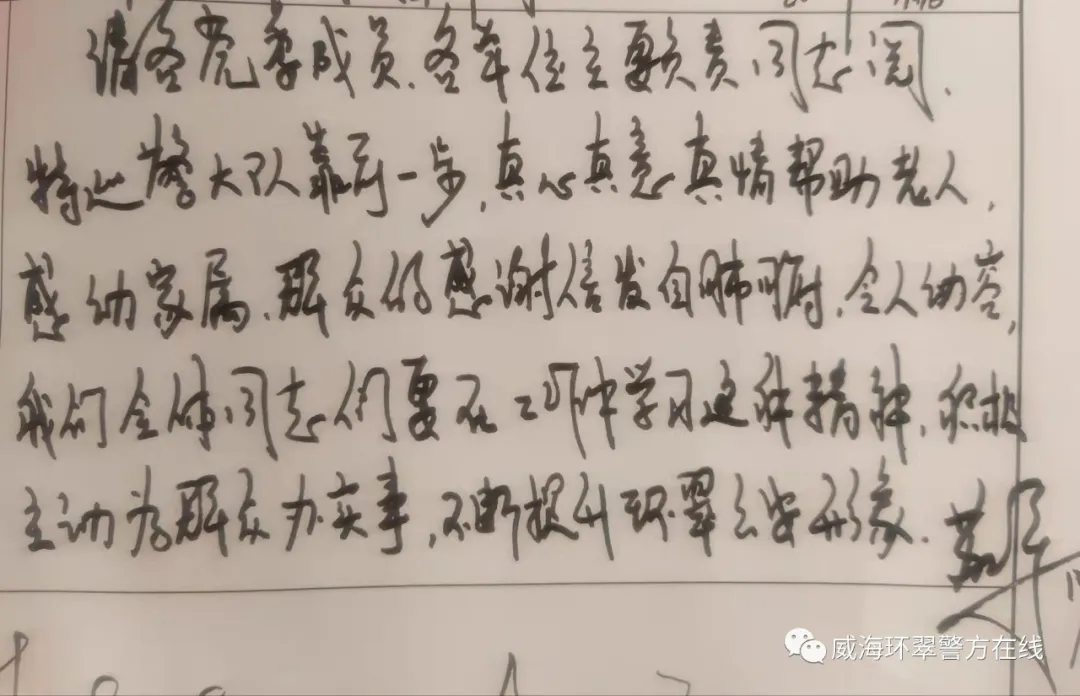 请各党委成员、各单位主要负责同志阅.
特巡警大队靠前一步,真心真意真情帮助老人,
感动家属.群众的感谢信发自肺腑,令人动容,
我们全体同志们要在工作中学习这种精神,积极
主动为群众办实事,不断提升环翠公安形象.
威海环翠警方在线